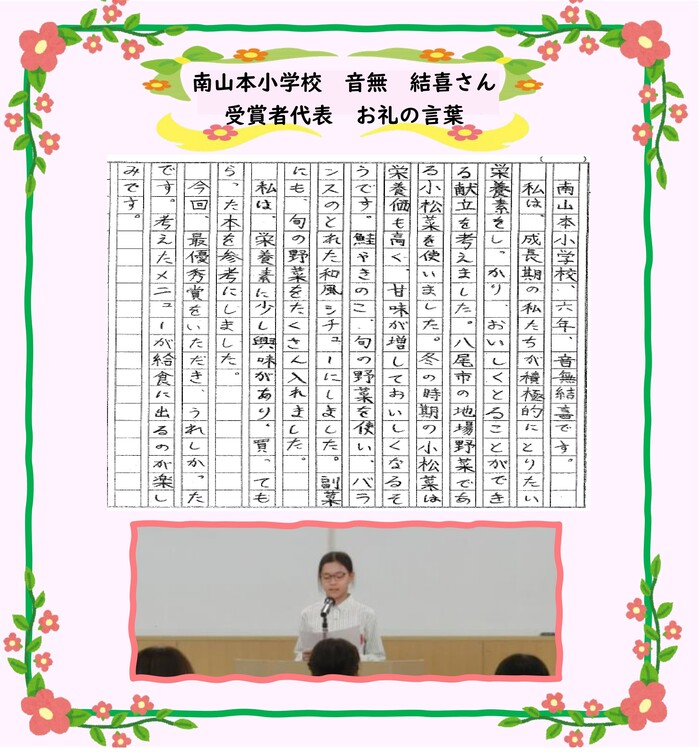 南山本小学校　音無　結喜さん
受賞者代表　お礼の言葉
南山本小学校、六年、音無結喜です。
私は、成長期の私たちが積極的にとりたい
栄養素をしっかり、おいしくとることができ
る献立を考えました。八尾市の地場野菜であ
る小松菜を使いました。冬の時期の小松菜は
栄養価も高く、甘味が増しておいしくなるそ
うです。鮭やきのこ、旬の野菜を使い、バラ
ンスのとれた和風シチューにしました。副菜
にも、旬の野菜をたくさん入れました。
私は、栄養素に少し興味があり、買っても
らった本を参考にしました。
今回、最優秀賞をいただき、うれしかった
です。考えたメニューが給食に出るのが楽し
みです。